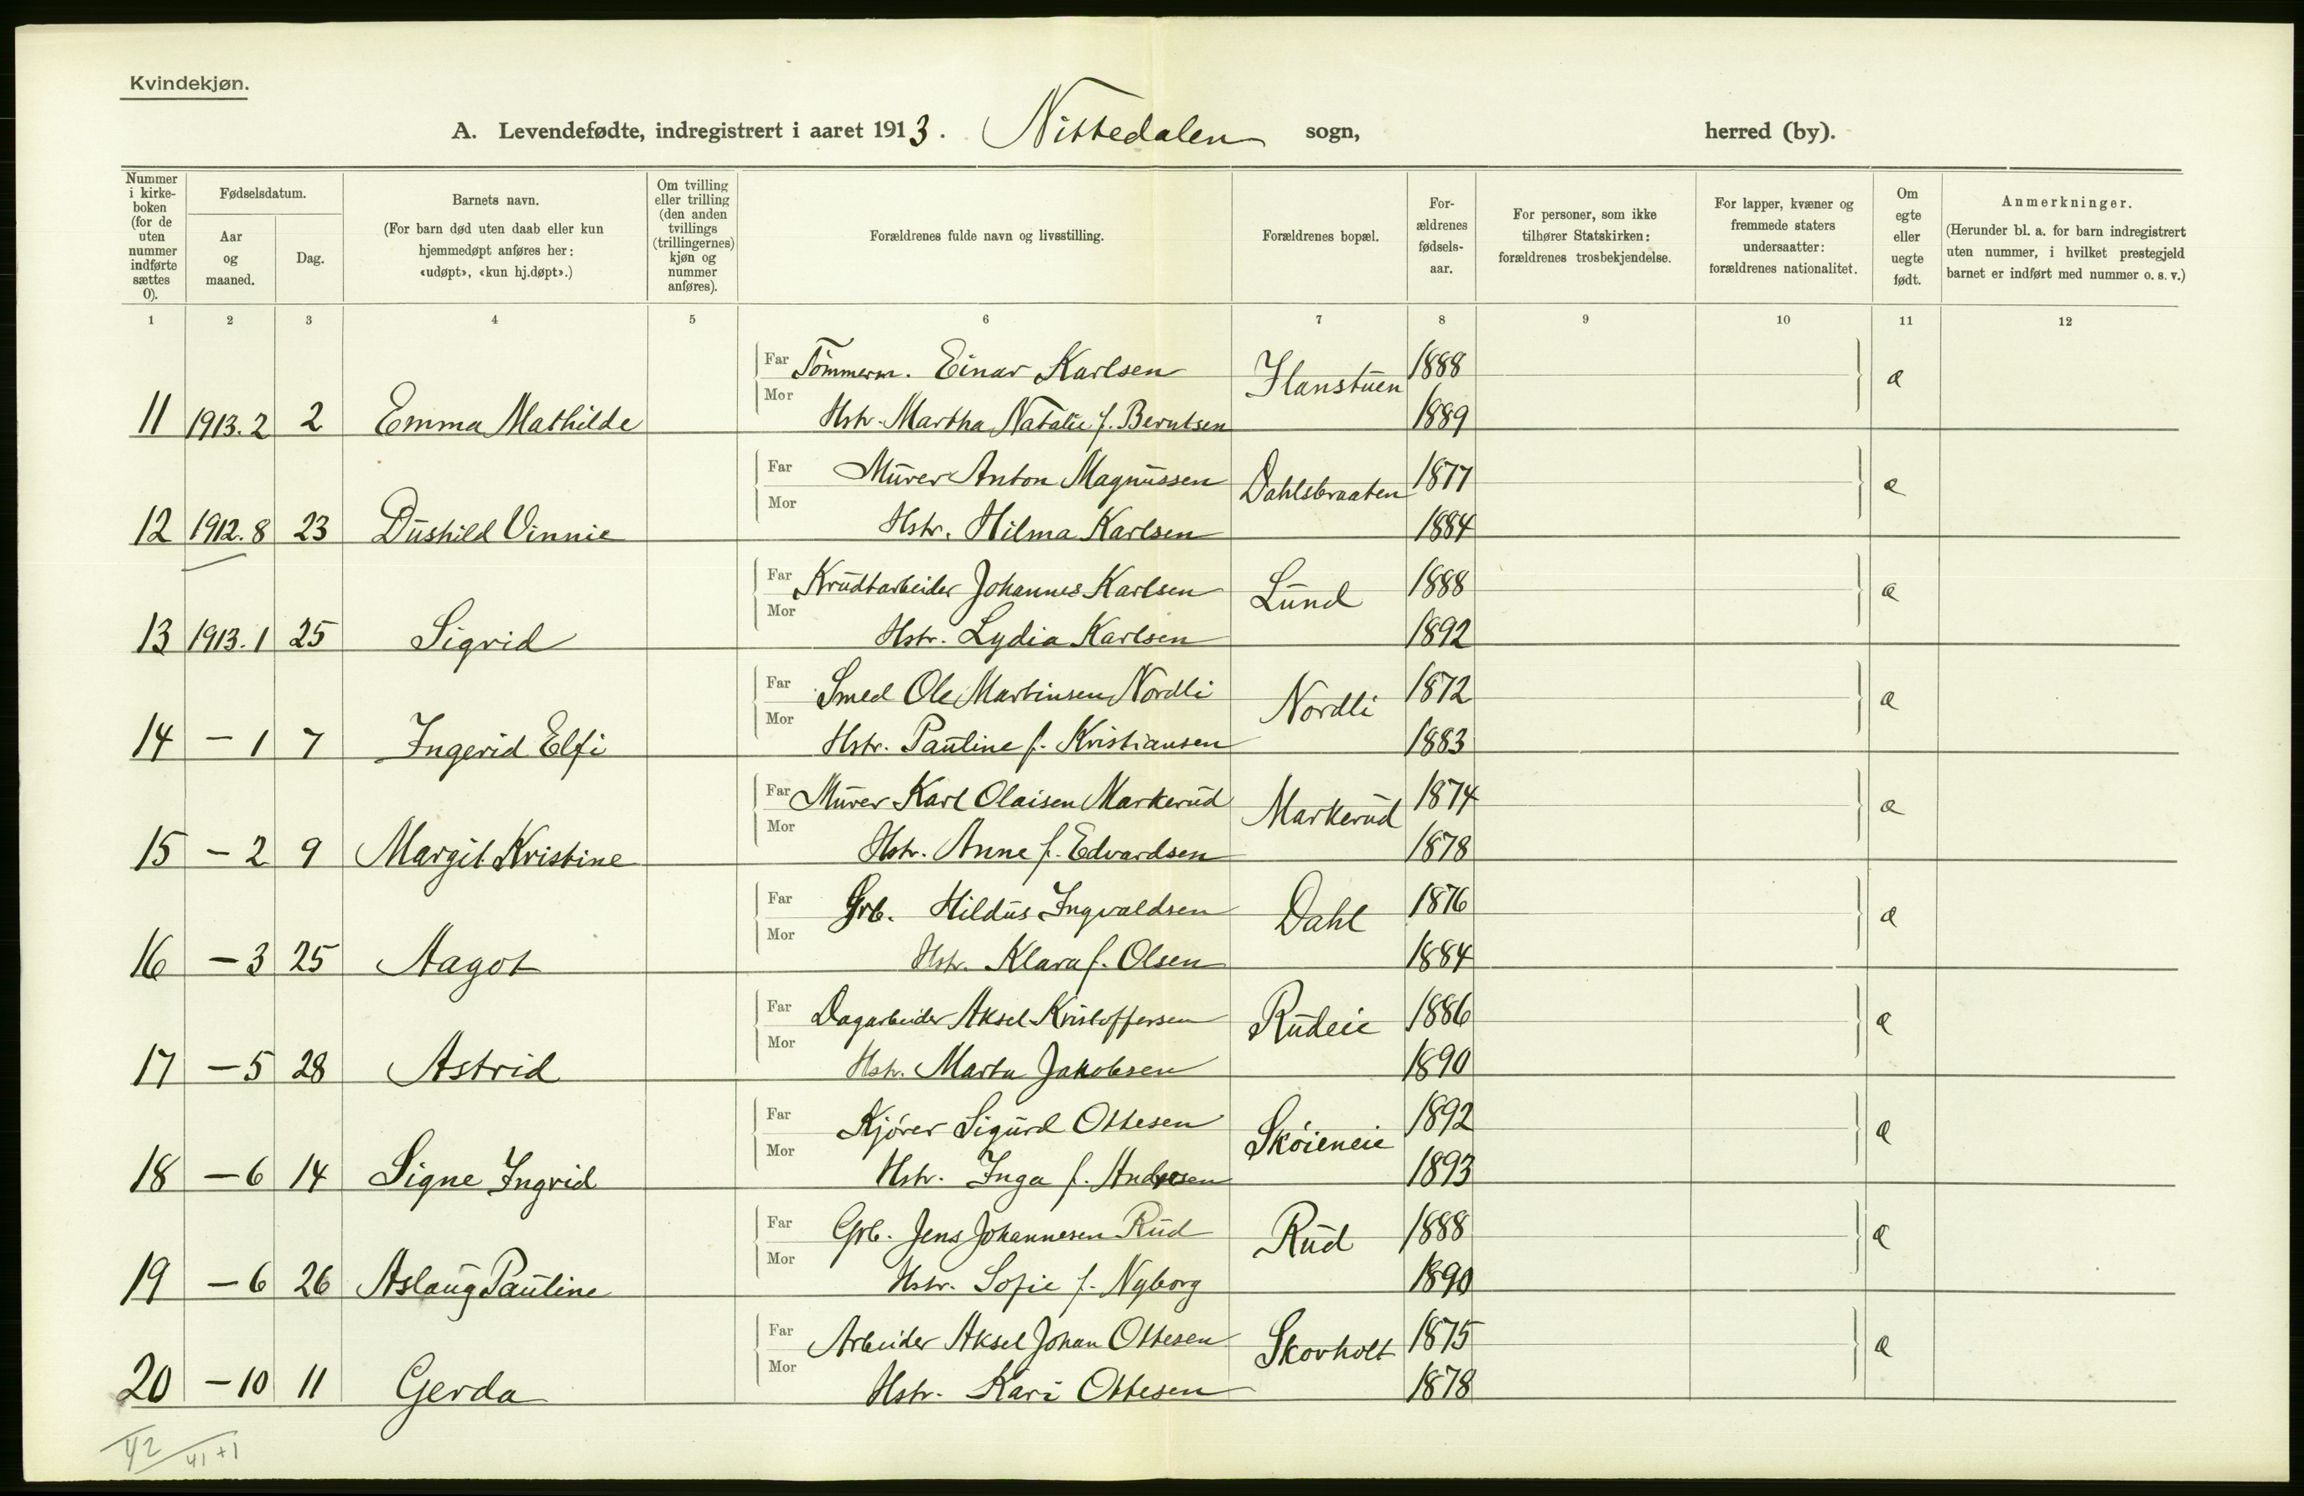 Kvindekjøn.
A. Levendefødte, indregistrert i aaret 1913. Nittedalen sogn, herred (by).
Nummer i kirke-boken (for de uten nummer indførte sættes 0).
Fødselsdatum.
Aar og maaned.
Dag.
Barnets navn.
(For barn død uten daab eller kun hjemmedøpt anføres her: «udøpt», «kun hj.døpt».)
Om tvilling eller trilling (den anden tvillings (trillingernes) kjøn og nummer anføres).
Forældrenes fulde navn og livsstilling.
Forældrenes bopæl.
For-ældrenes fødsels-aar.
For personer, som ikke tilhører Statskirken: forældrenes trosbekjendelse.
For lapper, kvæner og fremmede staters undersaatter: forældrenes nationalitet.
Om egte eller uegte født.
Anmerkninger.
(Herunder bl. a. for barn indregistrert uten nummer, i hvilket prestegjeld barnet er indført med nummer o. s. v.)
1 2 3 4 5 6 7 8 9 10 11 12
Far Tömmerm. Einar Karlsen Hanstuen 1888 æ
Mor
11 1913.2 2 Emma Mathilde Hstr. Martha Natalie f. Berntsen 1889
Far Murer Anton Magnussen Dahlsbraaten 1877 æ
Mor
12 1912.8 23 Dushild Vinnie Hstr. Hilma Karlsen 1884
Far Krudtarbeider Johannes Karlsen Lund 1888 æ
Mor
13 1913.1 25 Sigrid Hstr. Lydia Karlsen 1892
Far Smed Ole Martinsen Nordli Nordli 1872 æ
Mor
14 – 1 7 Ingerid Elfi Hstr. Pauline f. Kristiansen 1883
Far Murer Karl Olaisen Markerud Markerud 1874 æ
Mor
15 – 2 9 Margit Kristine Hstr. Anne f. Edvardsen 1878
Far Grb. Hildus Ingvaldsen Dahl 1876 æ
Mor
16 – 3 25 Aagot Hstr. Klara f. Olsen 1884
Far Dagarbeider Aksel Kristoffersen Rudeie 1886 æ
Mor
17 – 5 28 Astrid Hstr. Marta Jakobsen 1890
Far Kjörer Sigurd Ottesen Sköieneie 1892 æ
Mor
18 – 6 14 Signe Ingrid Hstr. Inga f. Andresen 1893
Far Grb. Jens Johannesen Rud Rud 1888 æ
Mor
19 – 6 26 Aslaug Pauline Hstr. Sofie f. Nyborg 1890
Far Arbeider Aksel Johan Ottesen Skovholt 1875 æ
Mor
20 – 10 11 Gerda Hstr. Kari Ottesen 1878
42 41+1